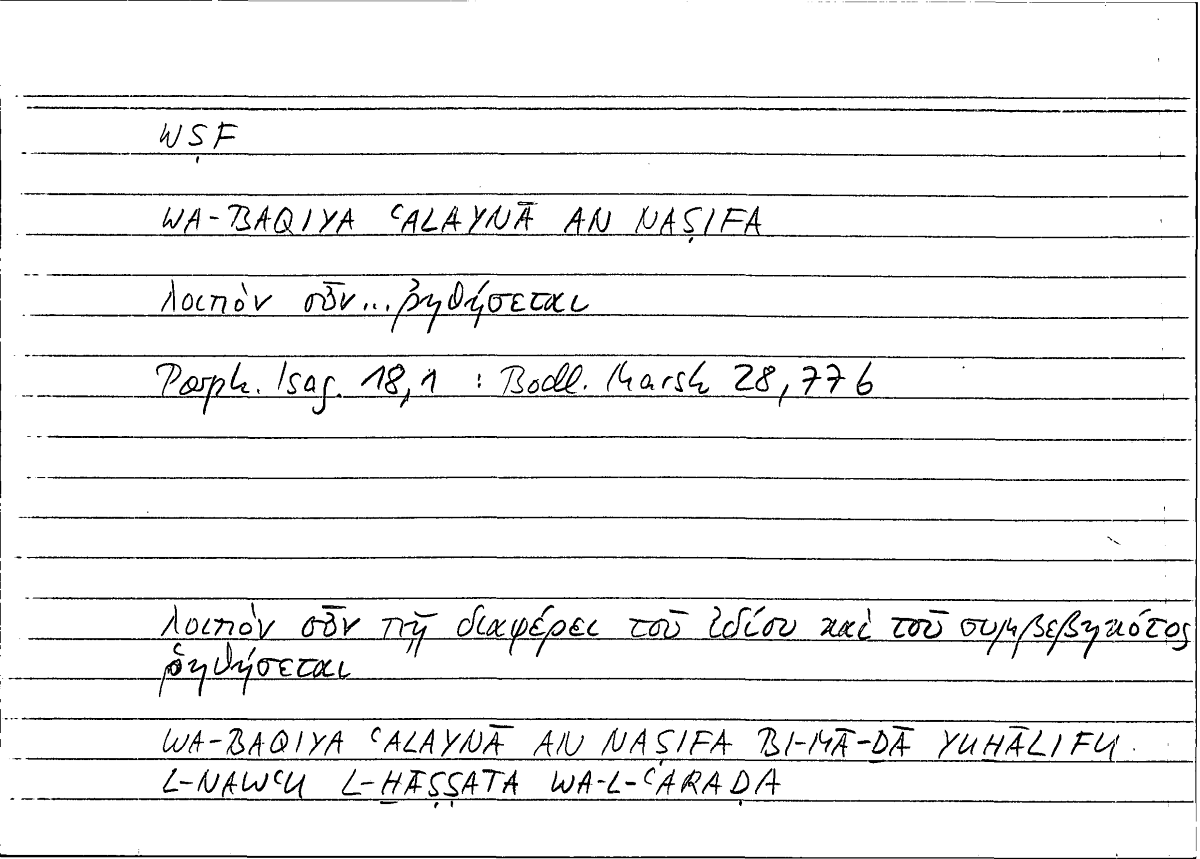 WṢF
WA-BAQIYA ʿALAYNĀ AN NAṢIFA
λοιπὸν οὖν...ῥηθήσεται
Porph. Isag. 18,1 : Bodl. Marsh 28,77 b
λοιπὸν οὖν πῇ διαφέρει τοῦ ἰδίου καὶ τοῦ συμβεβηκότος
ῥηθήσεται
WA-BAQIYA ʿALAYNĀ AN NAṢIFA BI-MĀ-ḎĀ YUḪĀLIFU
L-NAWʿU L-ḪĀṢṢATA WA-L-ʿARAḌA